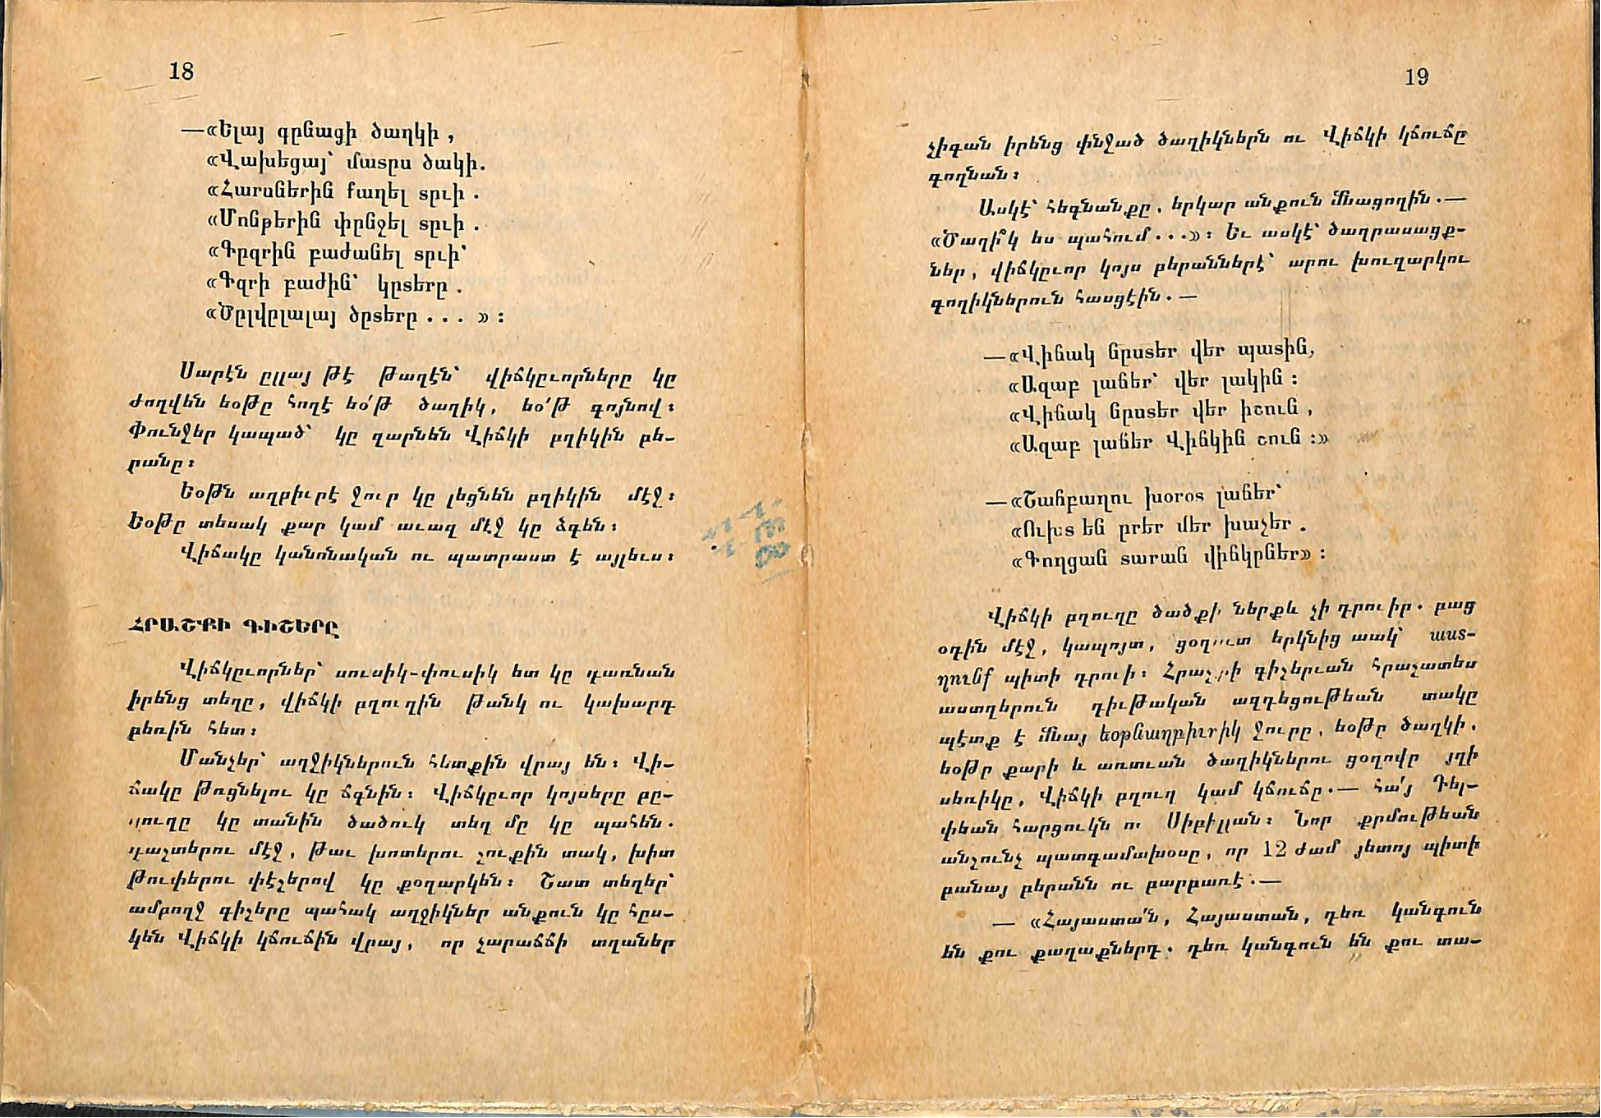 18
—«Ելայ գընացի ծաղկի,
«Վախեցայ՝ մատըս ծակի.
«Հարսներին քաղել տըւի.
«Մոնքերին փընջել տըւի.
«Գըզրին բաժանել տըւի՝
«Գզրի բաժին՝ կըտերը.
«Ծըլվըլալայ ծըտերը...»:
Սարէն ըլլայ թէ թաղէն՝ վիճկըւորները կը
ժողվեն եօթը հողէ եօ՛թ ծաղիկ, եօ՛թ գոյնով:
Փունջեր կապած՝ կը զարնեն Վիճկի բղիկին բե-
րանը:
Եօթն աղբիւրէ ջուր կը լեցնեն բղիկին մէջ:
Եօթը տեսակ քար կամ աւազ մէջ կը ձգեն:
Վիճակը կանոնական ու պատրաստ է այլեւս:
ՀՐԱՇՔԻ ԳԻՇԵՐԸ
Վիճկըւորներ՝ սուսիկ-փուսիկ ետ կը դառնան
իրենց տեղը, վիճկի բղուղին թանկ ու կախարդ
բեռին հետ:
Մանչեր՝ աղջիկներուն հետքին վրայ են: Վի-
ճակը թռցնելու կը ճգնին: Վիճկըւոր կոյսերը բը-
ղուղը կը տանին ծածուկ տեղ մը կը պահեն.
դաշտերու մէջ, թաւ խոտերու շուքին տակ, խիտ
թուփերու փէշերով կը քօղարկեն: Շատ տեղեր՝
ամբողջ գիշերը պահակ աղջիկներ անքուն կը հըս-
կեն Վիճկի կճուճին վրայ, որ չարաճճի տղաներ
19
չիգան իրենց փնջած ծաղիկներն ու Վիճկի կճուճը
գողնան:
Ասկէ՝ հեգնանքը, երկար անքուն մնացողին.—
«Ծաղի՞կ ես պահում...»: Եւ ասկէ՝ ծաղրասացք-
ներ, վիճկըւոր կոյս բերաններէ՝ արու խուզարկու
գողիկներուն հասցէին.—
—«Վինակ նըստեր վեր պատին,
«Ազաբ լաներ՝ վեր լակին:
«Վինակ նըստեր վեր իշուն,
«Ազաբ լաներ Վինկին շուն:»
—«Շահբաղու խօրօտ լաներ՝
«Ուխտ են բրեր մեր խաչեր.
«Գողցան տարան վինկըներ»:
Վիճկի բղուղը ծածքի ներքև չի դրուիր. բաց
օդին մէջ, կապոյտ, ցօղուտ երկնից տակ՝ աստ-
ղունք պիտի դրուի: Հրաշքի գիշերւան հրաշատես
աստղերուն դիւթական ազդեցութեան տակը
պէտք է մնայ եօթնաղբիւրիկ ջուրը, եօթը ծաղկի,
եօթը քարի և առտւան ծաղիկներու ցօղովը յղի
սեռիկը, Վիճկի բղուղ կամ կճուճը.— հա՛յ Դել-
փեան հարցուկն ու Սիբիլլան: Նոր քրմութեան
անշունչ պատգամախօսը, որ 12 ժամ յետոյ պիտի
բանայ բերանն ու բարբառէ.—
— «Հայաստա՛ն, Հայաստան, դեռ կանգուն
են քու քաղաքներդ. դեռ կանգուն են քու տա-